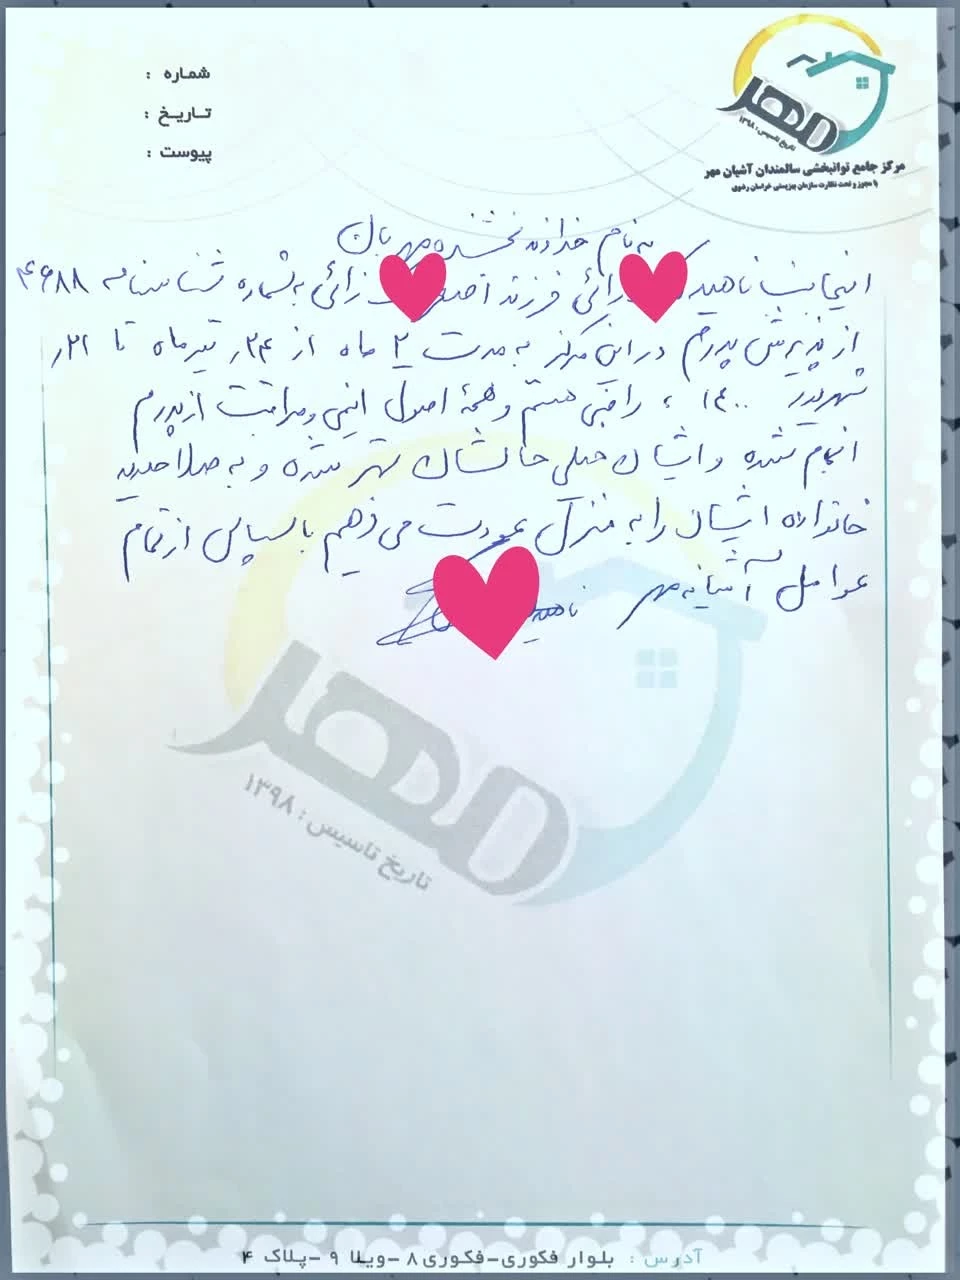 شماره :
تاریخ :
پیوست :
مهر
تاریخ تاسیس : ۱۳۹۸
مرکز جامع توانبخشی سالمندان آشیان مهر
با مجوز و تحت نظارت سازمان بهزیستی خراسان رضوی
به نام خداوند بخشنده مهربان
اینجانب ناهید رائی فرزند زائی به شماره شناسنامه ۴۶۸۸
از پذیرش پدرم در این مرکز به مدت ۲ ماه از ۲۴ تیرماه تا ۲۱
شهریور ۱۴۰۰ ، راضی هستم و همهٔ اصول ایمنی و مراقبت از پدرم
انجام شده و ایشان خیلی حالشان بهتر شده و به صلاحدید
خانواده ایشان را به منزل عودت می دهم با سپاس از تمام
عوامل آشیانه مهر ناهید
مهر
تاریخ تاسیس : ۱۳۹۸
آدرس : بلوار فکوری-فکوری ۸ -ویلا ۹ -پلاک ۴